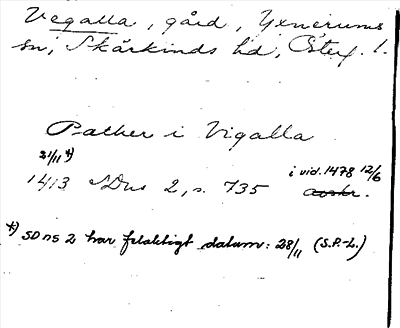 Vegalla, gård, Yxnerums
sn, Skärkinds hd, Östg. l.
Pather i Vigalla
31/11 *)
1413 SDns 2, s. 735 i vid. 1478 12/6
avskr.
*) SDns 2 har felaktigt datum: 28/11 (S.P.-L.)